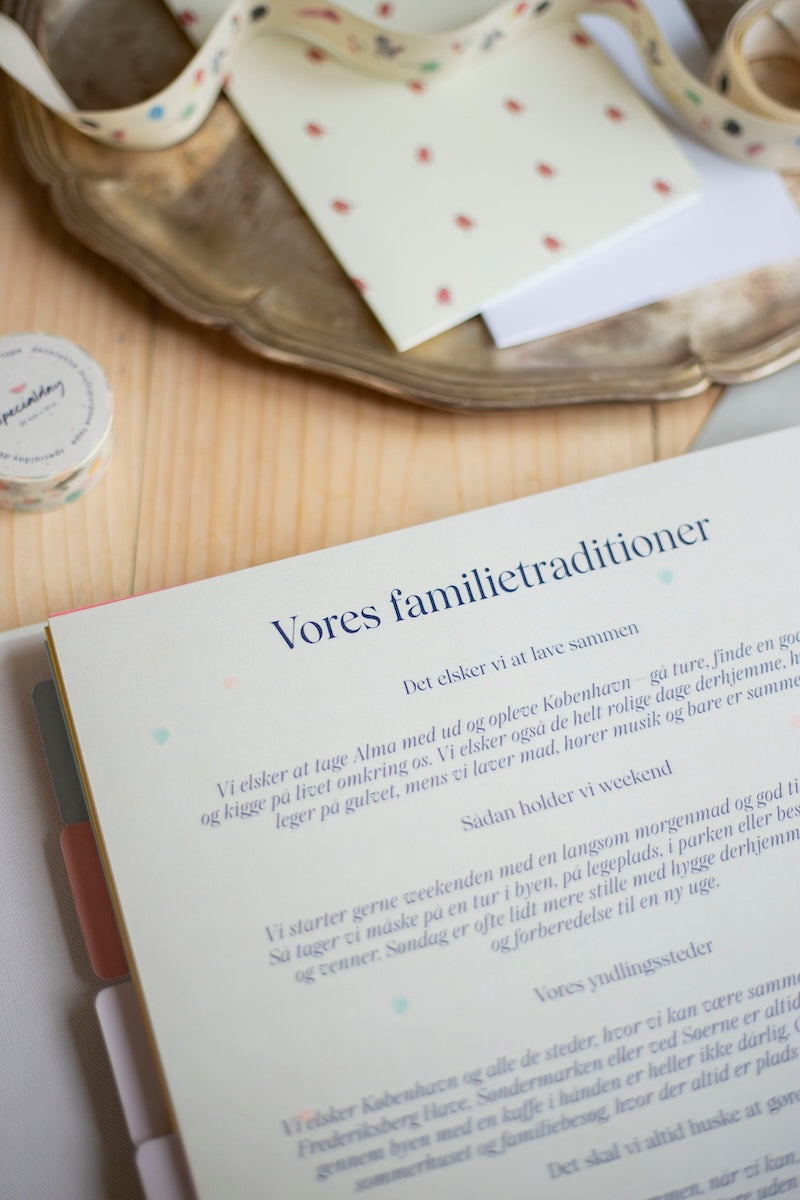 tape decorative multipurpose tape
specialday
specialday.de
Vores familietraditioner
Det elsker vi at lave sammen
Vi elsker at tage Alma med ud og opleve København – gå ture, finde en god
og kigge på livet omkring os. Vi elsker også de helt rolige dage derhjemme,
leger på gulvet, mens vi laver mad, hører musik og bare er samme
Sådan holder vi weekend
Vi starter gerne weekenden med en langsom morgenmad og god ti
Så tager vi måske på en tur i byen, på legeplads, i parken eller bes
og venner. Søndag er ofte lidt mere stille med hygge derhjemm
og forberedelse til en ny uge.
Vores yndlingssteder
Vi elsker København og alle de steder, hvor vi kan være samme
Frederiksberg Have, Søndermarken eller ved Søerne er altid
gennem byen med en kaffe i hånden er heller ikke dårlig.
sommerhuset og familiebesøg, hvor der altid er plads
Det skal vi altid huske at gøre
men, når vi kan,
uden